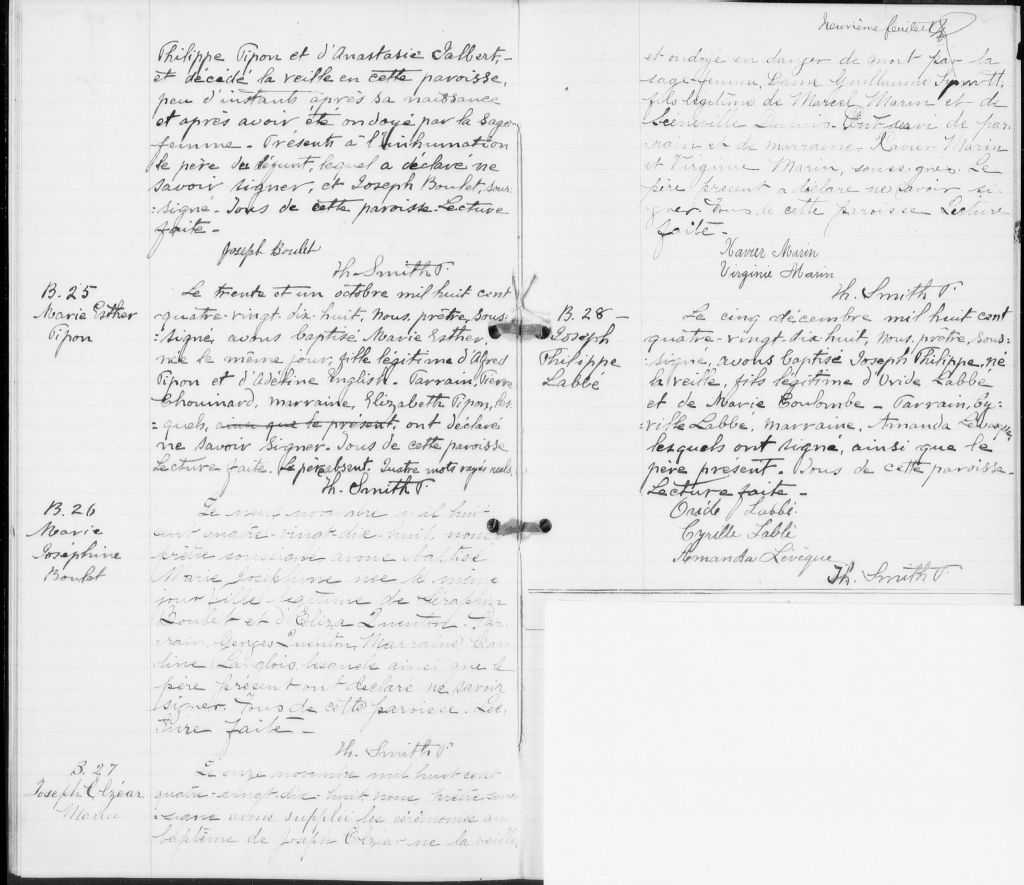 Philippe Pipon et d'Anastasie Jalbert,-
et décédé la veille en cette paroisse,
peu d'instants après sa naissance
et après avoir été ondoyé par la sage-
femme - Présents à l'inhumation
le père du défunt, lequel a déclaré ne
savoir signer, et Joseph Boulet, sous-
:signé. Tous de cette paroisse. Lecture
faite -
Joseph Boulet
Th. Smith P.
B. 25
Marie Esther
Pipon
Le trente et un octobre mil huit cent
quatre-vingt-dix-huit, Nous, prêtre, sous-
:signé, avons baptisé Marie Esther,
née le même jour, fille légitime d'Alfred
Pipon et d'Adéline English. Parrain, Pierre
Chouinard, marraine, Elizabeth Pipon, les-
:quels, ainsi que le présent, ont déclaré
ne savoir signer. Tous de cette paroisse
Lecture faite. Le père absent. Quatre mots rayés nuls.
Th. Smith P.
B. 26
Marie
Joséphine
Boulet
Le neuf novembre mil huit
cent quatre-vingt-dix-huit, nous
prêtre soussigné avons baptisé
Marie Joséphine née le même
jour fille légitime de Séraphin
Boulet et d'Eliza Quenton. Par-
:rain, Georges Quenton, Marraine, Caro-
line Langlois, lesquels ainsi que le
père présent ont déclaré ne savoir
signer. Tous de cette paroisse. Lec-
:ture faite -
Th. Smith P.
B. 27
Joseph Elzéar
Marin
Le onze novembre mil huit cent
quatre-vingt-dix-huit nous, prêtre sous-
:signé avons suppléé les cérémonies au
baptême de Joseph Elzéar né la veille
Neuvième feuillet
et ondoyé en danger de mort par la
sage-femme, Dame Guillaume
fils légitime de Marcel Marin et de
Dubuis. Ont servi de par-
rain et de marraine, Xavier Marin
et Virginie Marin, soussignés. Le
père présent a déclaré ne savoir si-
gner. Tous de cette paroisse Lecture
faite -
Xavier Marin
Virginie Marin
Th. Smith P.
B. 28 -
Joseph
Philippe
Labbé
Le cinq décembre mil huit cent
quatre-vingt-dix-huit, Nous, prêtre, sous-
:signé, avons baptisé Joseph Philippe, né
la veille, fils légitime d'Ovide Labbé
et de Marie Coulombe - Parrain, Cy-
:rille Labbé, marraine, Amanda
lesquels ont signé, ainsi que le
père présent. Tous de cette paroisse -
Lecture faite -
Ovide Labbé
Cyrille Labbé
Amanda Lévèque
Th. Smith P.